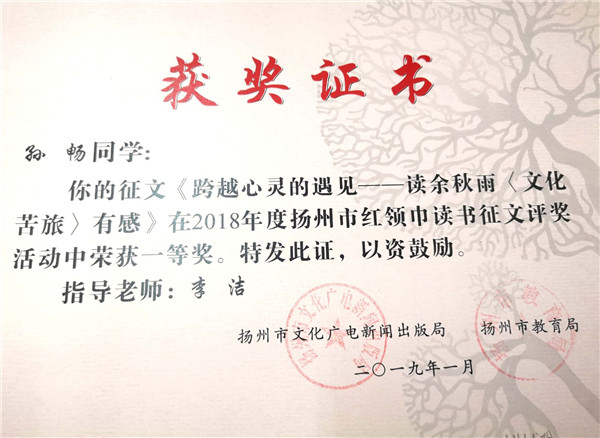 获奖证书
孙畅同学：
你的征文《跨越心灵的遇见——读余秋雨〈文化
苦旅〉有感》在2018年度扬州市红领巾读书征文评奖
活动中荣获一等奖。特发此证，以资鼓励。
指导老师：李洁
扬州市文化广电新闻出版局 扬州市教育局
二〇一九年一月